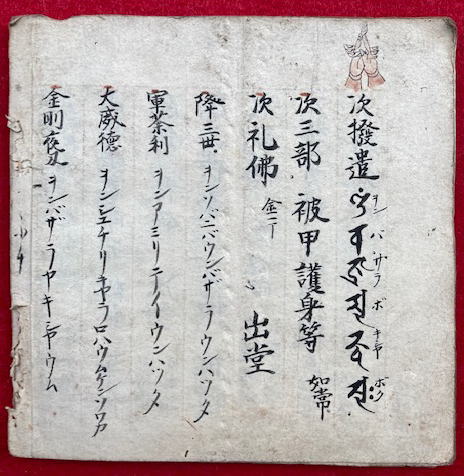 次撥遣 ヲンバザラボキシヤボク
次三部 被甲護身等 如常
次礼佛 金一丁 出堂
降三世 ヲンソバニバウンバザラウンハツタ
軍荼利 ヲンアミリテイウンハツタ
大威德 ヲンシユチリキヤラロハウムケンソワカ
金剛夜叉 ヲンバザラヤキシヤウム